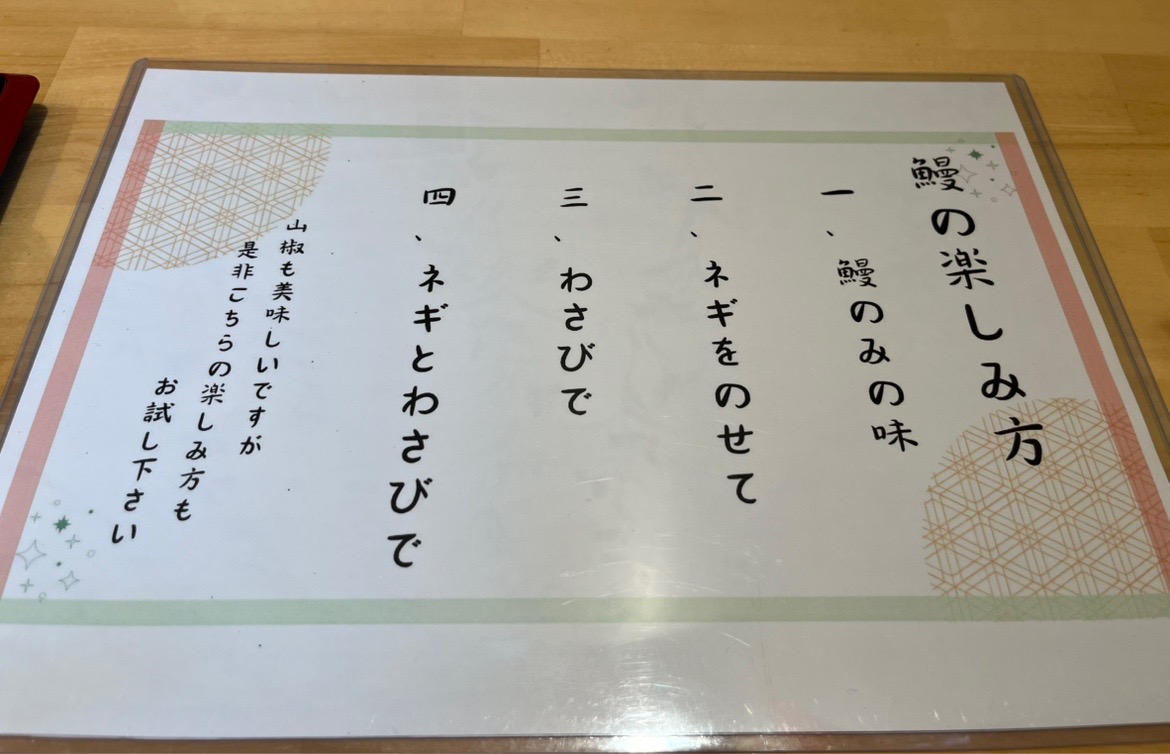 鰻の楽しみ方
一、鰻のみの味
二、ネギをのせて
三、わさびで
四、ネギとわさびで
山椒も美味しいですが
是非こちらの楽しみ方も
お試し下さい